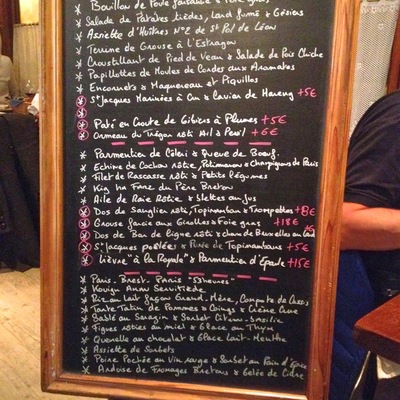 * Bouillon de Poule faisane & Foie gras
* Salade de Patates tièdes, Lard fumé & Gésiers
* Assiette d'Huîtres N°2 de St Pol de Léon
* Terrine de Grouse à l'Estragon
* Croustillant de Pied de Veau & Salade de Pois Chiche
* Papillottes de Moules de Cordes aux Aromates
* Encornets & Maquereau et Piquillos
* St Jacques Marinées à Cru & Caviar de Hareng +5€
* Paté en Croute de Gibiers à Plumes +5€
* Ormeau du Trégor rôti Ail & Persil +6€
* Parmentier de Céleri & Queue de Boeuf.
* Echine de Cochon rôtie, Potimarron & Champignons de Paris
* Filet de Rascasse rôti & Petits légumes
* Kig Ha Farz du Père Breton
* Aile de Raie Rôtie & blettes au jus
* Dos de Sanglier rôti, Topinambour & Trompettes +8€
* Grouse farcie aux Girolles & Foie gras +18€
* Dos de Bar de ligne rôti &
* St Jacques poêlées & Purée de Topinambours +5€
* Lièvre "à la Royale" & Parmentier d'Epaule +15€
* Paris-Brest-Paris "53heures"
* Kouign Amann
* Riz au Lait façon Grand-Mère, Compote de
* Tarte Tatin de Pommes & Coings & Crème Crue
* Sablé au Sarrazin & Sorbet Citron-basilic
* Figues rôties au miel & Glace au Thym
* Quenelle au chocolat & Glace Lait-Menthe
* Assiette de Sorbets
* Poire Pochée au Vin rouge & Sorbet au Pain d'épice
* Ardoise de Fromages Bretons & Gelée de Cidre